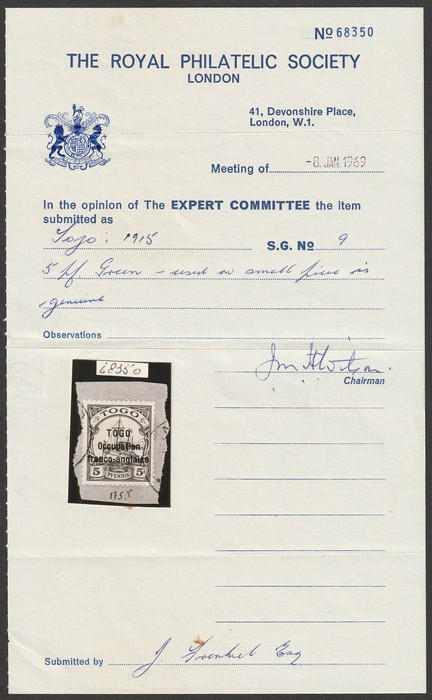 No 68350
THE ROYAL PHILATELIC SOCIETY
LONDON
41, Devonshire Place,
London, W.1.
Meeting of -8. JAN. 1969
In the opinion of The EXPERT COMMITTEE the item
submitted as
Togo: 1915 S.G. No 9
5 pf. Green – used on small piece is
genuine
Observations
Chairman
68350
TOGO
TOGO
Occupation
franco-anglaise
5 PFENNIG 5
Submitted by J. Frenkel Esq